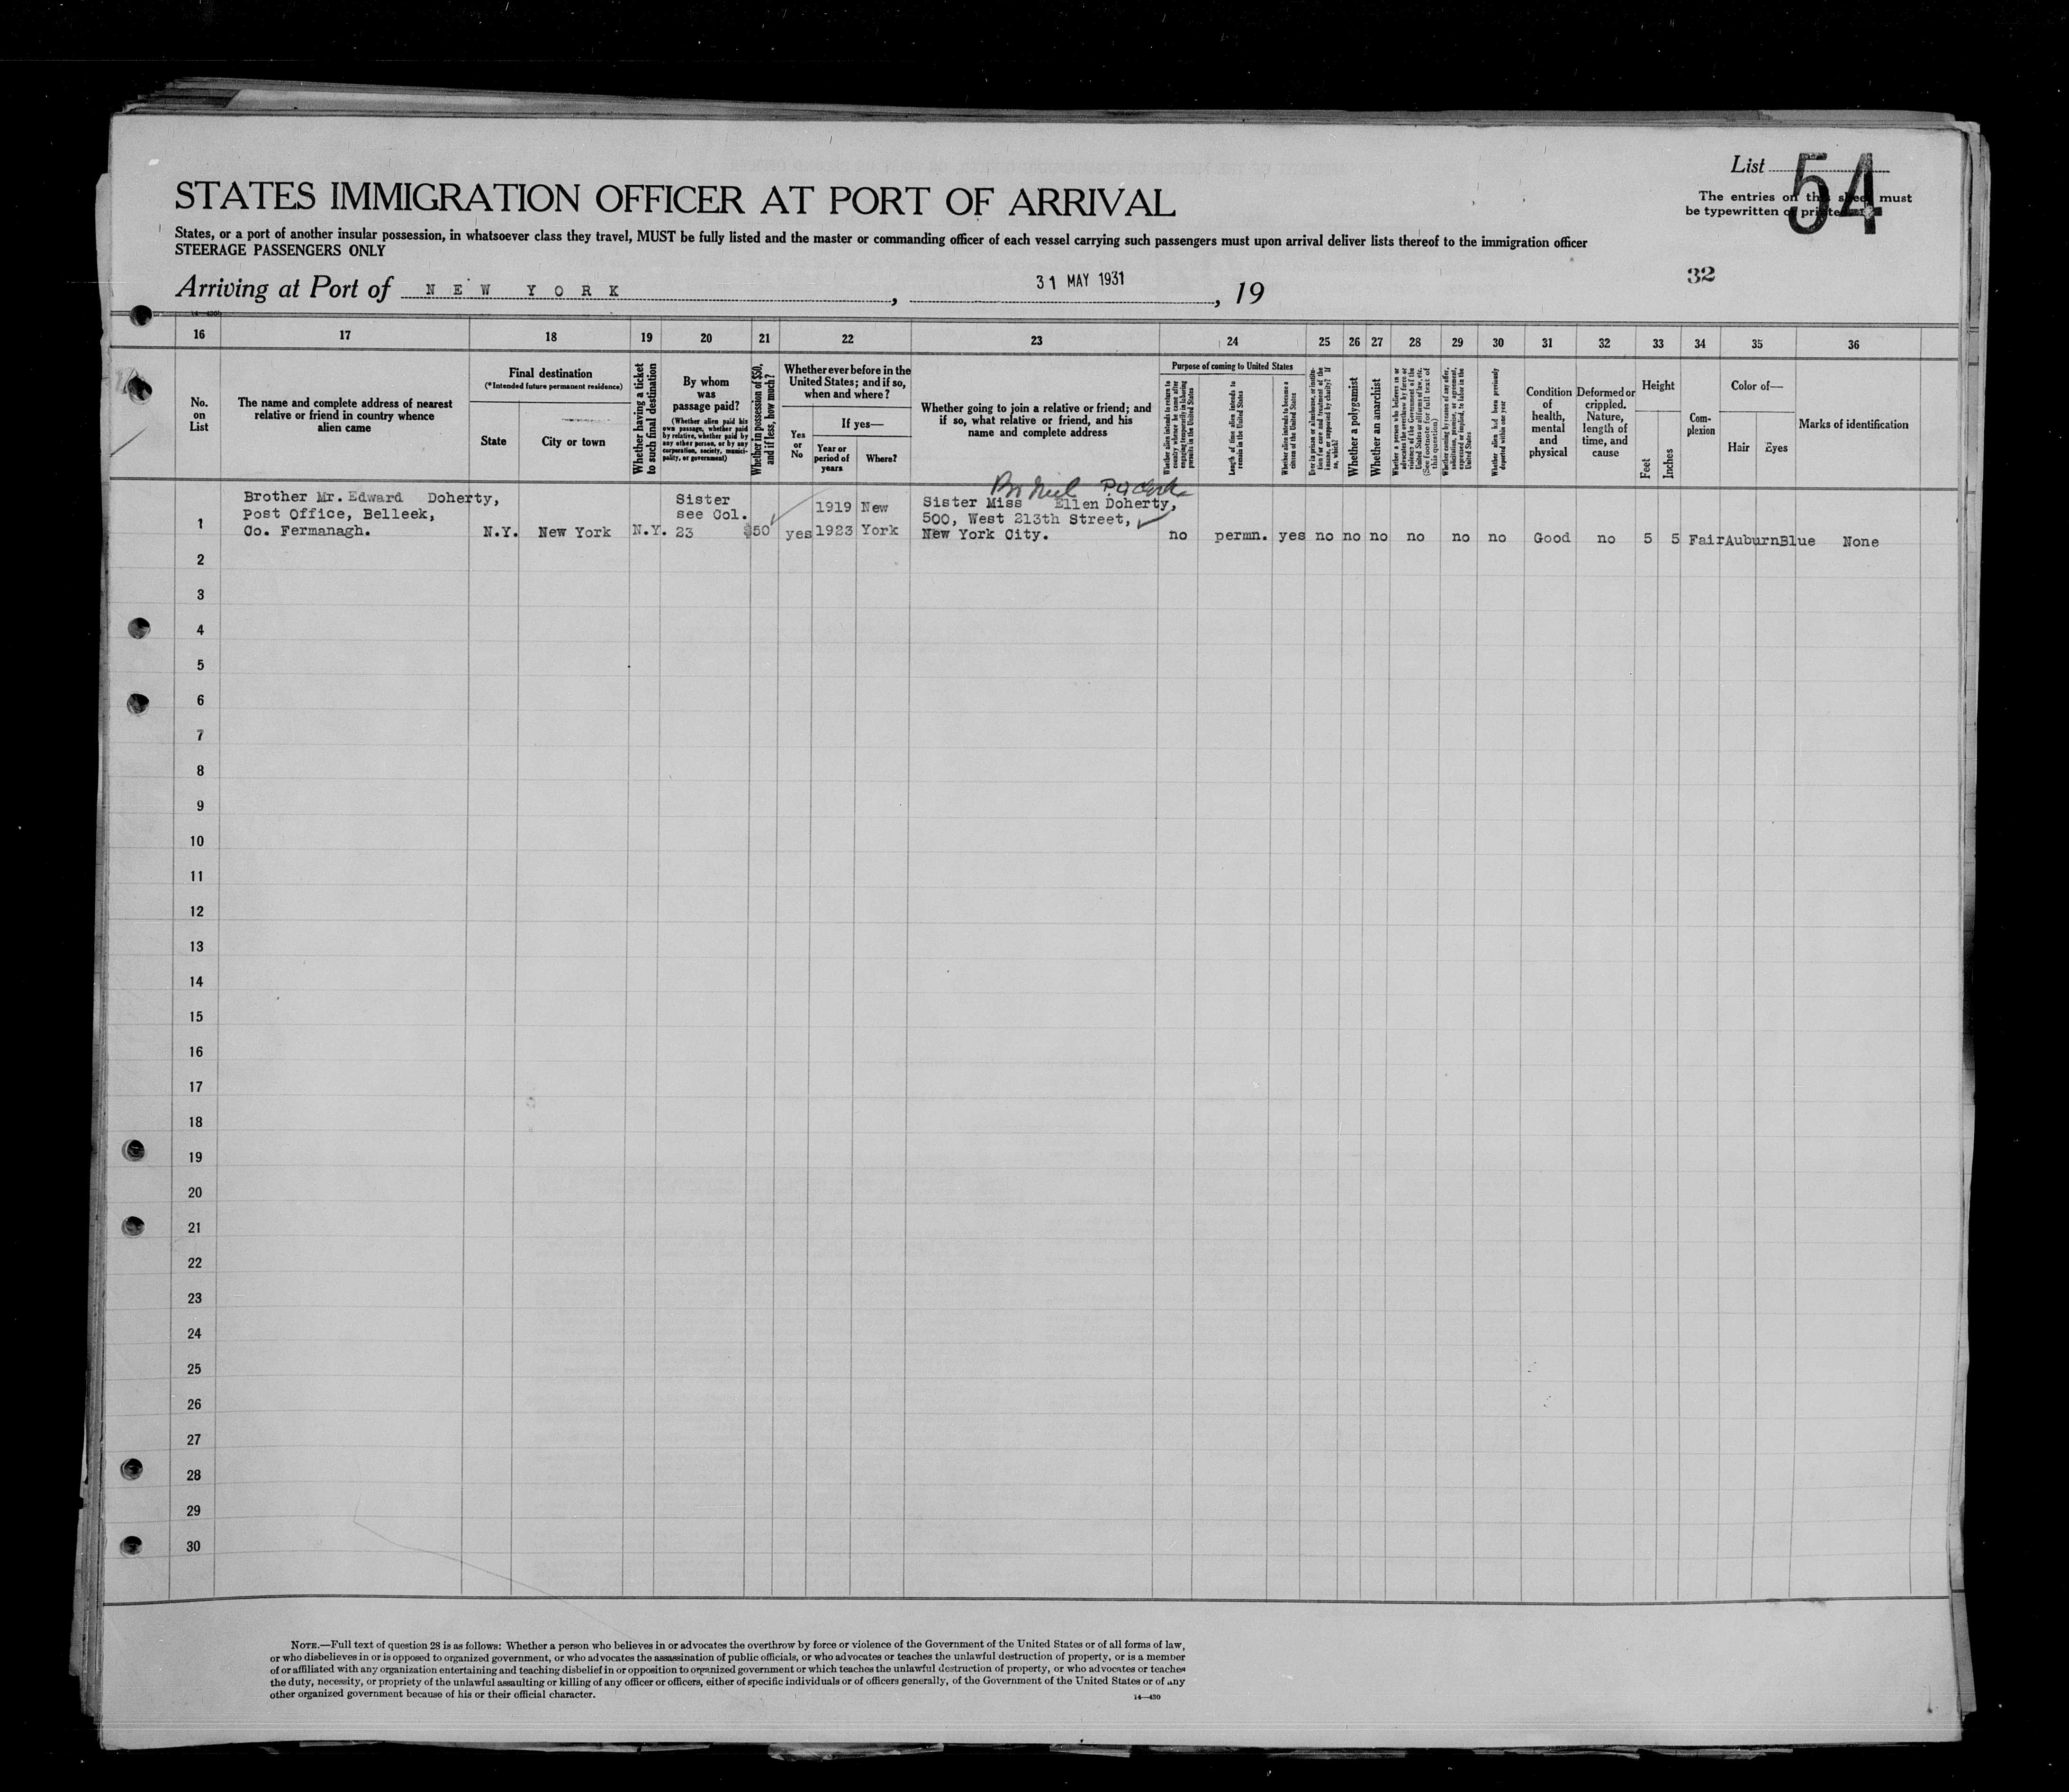 List 54
The entries on this sheet must
be typewritten or printed.
STATES IMMIGRATION OFFICER AT PORT OF ARRIVAL
States, or a port of another insular possession, in whatsoever class they travel, MUST be fully listed and the master or commanding officer of each vessel carrying such passengers must upon arrival deliver lists thereof to the immigration officer
STEERAGE PASSENGERS ONLY
32
Arriving at Port of NEW YORK, 31 MAY 1931, 19
16 17 18 19 20 21 22 23 24 25 26 27 28 29 30 31 32 33 34 35 36
No.
on
List
The name and complete address of nearest
relative or friend in country whence
alien came
Final destination
(*Intended future permanent residence)
State
City or town
Whether having a ticket
to such final destination
By whom
was
passage paid?
(Whether alien paid his
own passage, whether paid
by relative, whether paid by
any other person, or by any
corporation, society, munici-
pality, or government)
Whether in possession of $50,
and if less, how much?
Whether ever before in the
United States; and if so,
when and where?
Yes
or
No
If yes—
Year or
period of
years
Where?
Whether going to join a relative or friend; and
if so, what relative or friend, and his
name and complete address
Purpose of coming to United States
Whether alien intends to return to
country whence he came after
engaging temporarily in laboring
pursuits in the United States
Length of time alien intends to
remain in the United States
Whether alien intends to become a
citizen of the United States
Ever in prison or almshouse, or institu-
tion for care and treatment of the
insane, or supported by charity? If
so, which?
Whether a polygamist
Whether an anarchist
Whether a person who believes in or
advocates the overthrow by force or
violence of the Government of the
United States or all forms of law, etc.
(See footnote for full text of
this question)
Whether coming by reason of any offer,
solicitation, promise, or agreement,
expressed or implied, to labor in the
United States
Whether alien had been previously
deported within one year
Condition
of
health,
mental
and
physical
Deformed or
crippled.
Nature,
length of
time, and
cause
Height
Feet
Inches
Com-
plexion
Color of—
Hair
Eyes
Marks of identification
1
Brother Mr. Edward Doherty,
Post Office, Belleek,
Co. Fermanagh.
N.Y. New York N.Y.
Sister
see Col.
23
$50
yes
1919 New
1923 York
Sister Miss Ellen Doherty,
500, West 213th Street,
New York City.
no permn. yes no no no no no no Good no 5 5 Fair Auburn Blue None
2
3
4
5
6
7
8
9
10
11
12
13
14
15
16
17
18
19
20
21
22
23
24
25
26
27
28
29
30
NOTE.—Full text of question 28 is as follows: Whether a person who believes in or advocates the overthrow by force or violence of the Government of the United States or of all forms of law,
or who disbelieves in or is opposed to organized government, or who advocates the assassination of public officials, or who advocates or teaches the unlawful destruction of property, or is a member
of or affiliated with any organization entertaining and teaching disbelief in or opposition to organized government or which teaches the unlawful destruction of property, or who advocates or teaches
the duty, necessity, or propriety of the unlawful assaulting or killing of any officer or officers, either of specific individuals or of officers generally, of the Government of the United States or of any
other organized government because of his or their official character.
14—430